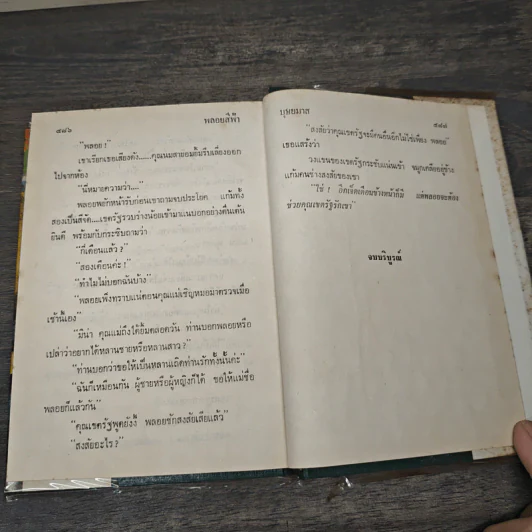 ๘๘๖ พลอยสีฟ้า
"พลอย !"
เขาเรียกเธอเสียงดัง.....คุณนมสายอมยิ้มรีบเลี่ยงออก
ไปจากห้อง
"นี่หมายความว่า...."
พลอยพยักหน้ารับก่อนเขาถามจบประโยค แก้มทั้ง
สองเป็นสีจัด....เขตรัฐรวบร่างน้อยเข้ามาแนบอกอย่างตื่นเต้น
ยินดี พร้อมกับกระซิบถามว่า
"กี่เดือนแล้ว ?"
"สองเดือนค่ะ !"
"ทำไมไม่บอกฉันบ้าง"
"พลอยเพิ่งทราบแน่ตอนคุณแม่เชิญหมอมาตรวจเมื่อ
เช้านี้เอง"
"มิน่า คุณแม่ถึงได้ยิ้มตลอดวัน ท่านบอกพลอยหรือ
เปล่าว่าอยากได้หลานชายหรือหลานสาว ?"
"ท่านบอกว่าขอให้เป็นหลานเถิดท่านรักทั้งนั้นค่ะ"
"ฉันก็เหมือนกัน ผู้ชายหรือผู้หญิงก็ได้ ขอให้แม่ชื่อ
พลอยก็แล้วกัน"
"คุณเขตรัฐพูดยังงี้ พลอยชักสงสัยเสียแล้ว"
"สงสัยอะไร ?"
บุษยมาส ๘๘๗
"สงสัยว่าคุณเขตรัฐจะมีคนอื่นอีกไม่ใช่เพียง พลอย"
เธอแสร้งว่า
วงแขนของเขตรัฐกระชับแน่นเข้า จมูกเคลียอยู่ข้าง
แก้มคนช่างสงสัยของเขา
"ใช่ ! อีกเจ็ดเดือนข้างหน้าก็มี แต่พลอยจะต้อง
ช่วยคุณเขตรัฐรักเขา"
จบบริบูรณ์